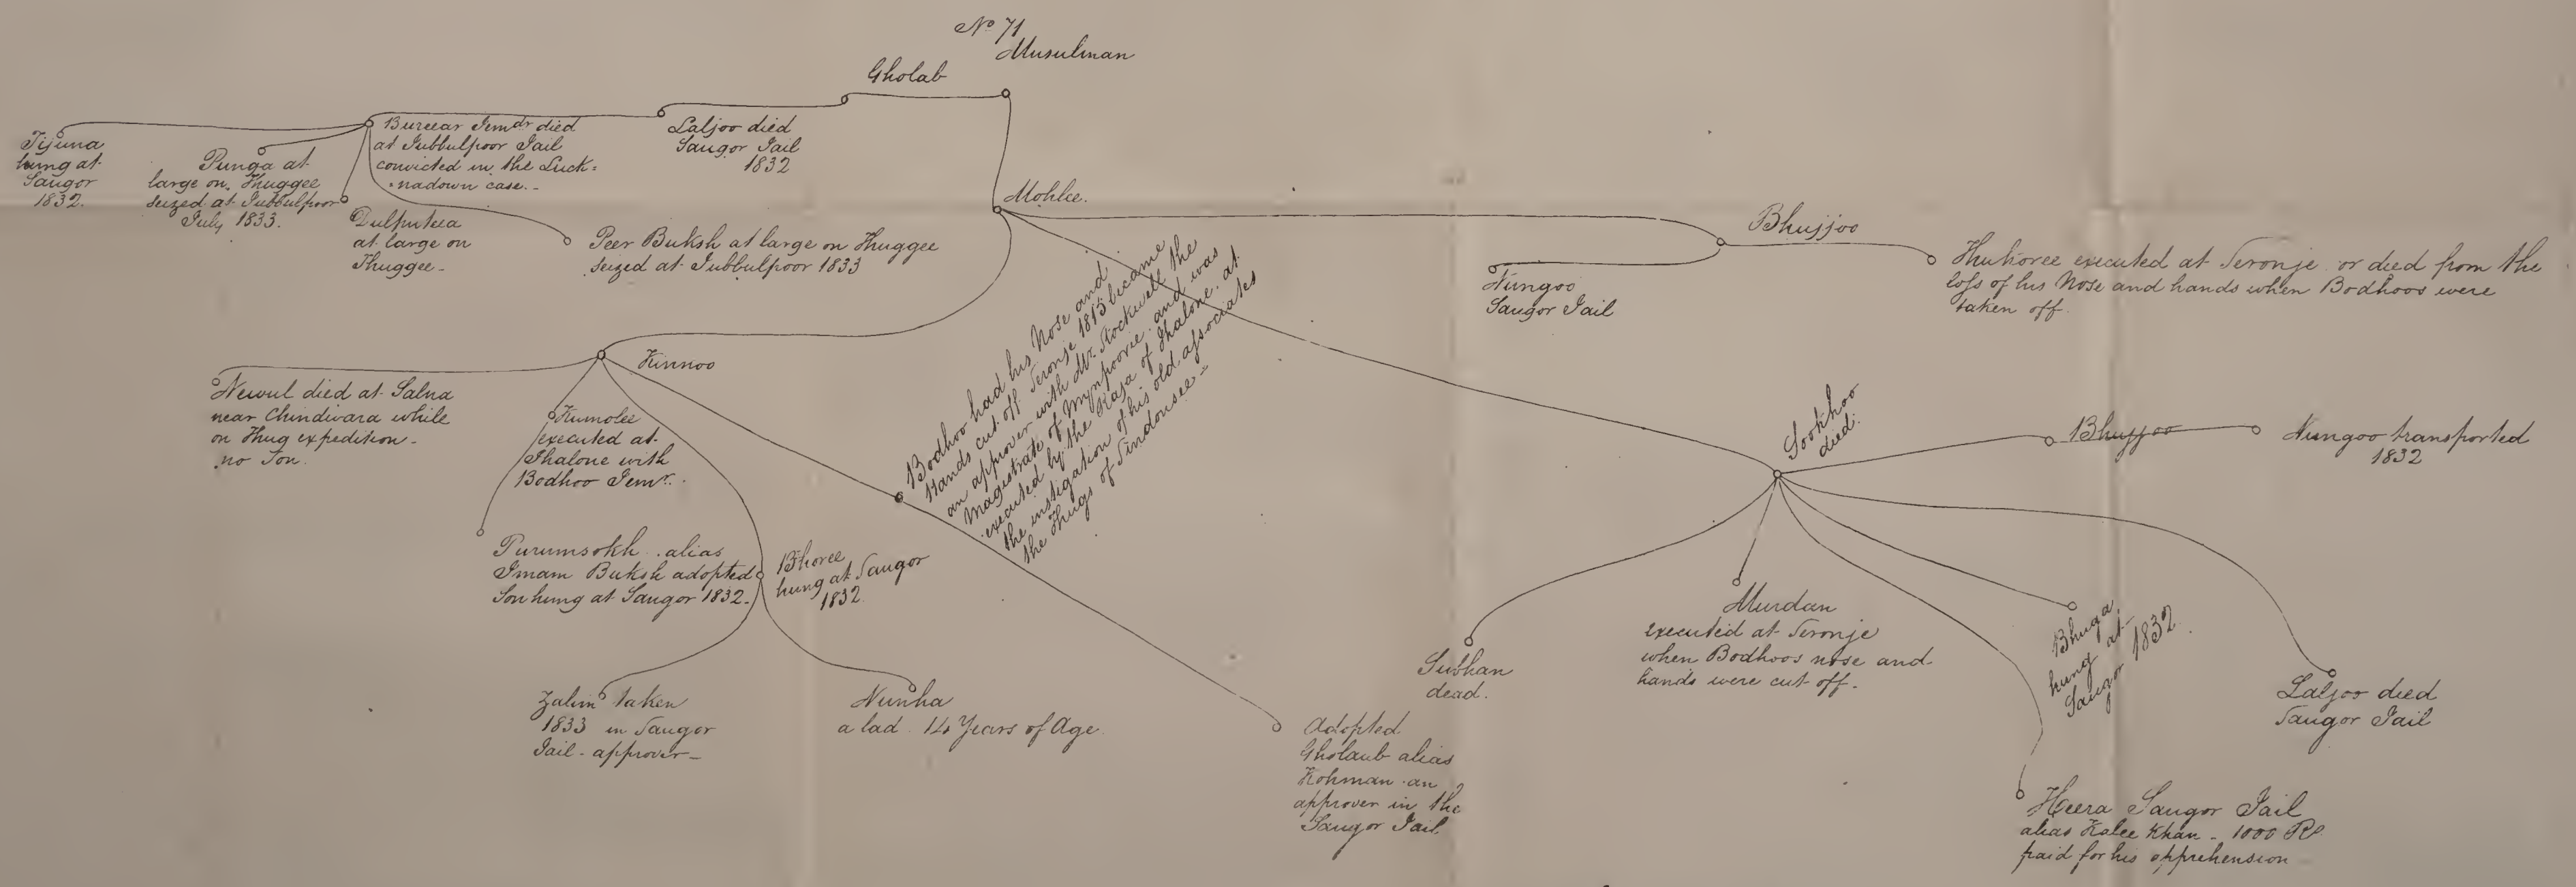 No 71
Musulman
Gholab
Tijuna
hung at
Saugor
1832.
Punga at
large on Thuggee
seized at Jubbulpoor
July 1833.
Burear Jemdr died
at Jubbulpoor Jail
convicted in the Luck=
nadown case.-
Dulputea
at large on
Thuggee-
Laljoo died
Saugor Jail
1832
Peer Buksh at large on Thuggee
seized at Jubbulpoor 1833
Mohlee.
Bhujjoo
Nungoo
Saugor Jail
Thukoree executed at Seronje or died from the
loss of his Nose and hands when Bodhoos were
taken off.
Kinnoo
Newul died at Salna
near Chindwara while
on Thug expedition-
no Son.
Kumolee
executed at
Jhalone with
Bodhoo Jemr.
Purumsokh alias
Imam Buksh adopted
Son hung at Saugor 1832.
Bhoree
hung at Saugor
1832.
Zalim taken
1833 in Saugor
Jail - approver-
Nunha
a lad 14 Years of Age.
Bodhoo had his Nose and
Hands cut off Seronje 1813 became
an approver with Mr. Stockwell the
Magistrate of Mynpoorie and was
executed by the Raja of Jhalone at
the instigation of his old associates
the Thugs of Sindousee.-
Adopted
Gholaub alias
Rohman an
approver in the
Saugor Jail
Sookhoo
died.
Bhujjoo
Nungoo transported
1832
Subhan
dead.
Murdan
executed at Seronje
when Bodhoos nose and
hands were cut off.
Bhuga
hung at
Saugor 1832.
Laljoo died
Saugor Jail
Heera Saugor Jail
alias Kalee Khan - 1000 Rs
paid for his apprehension